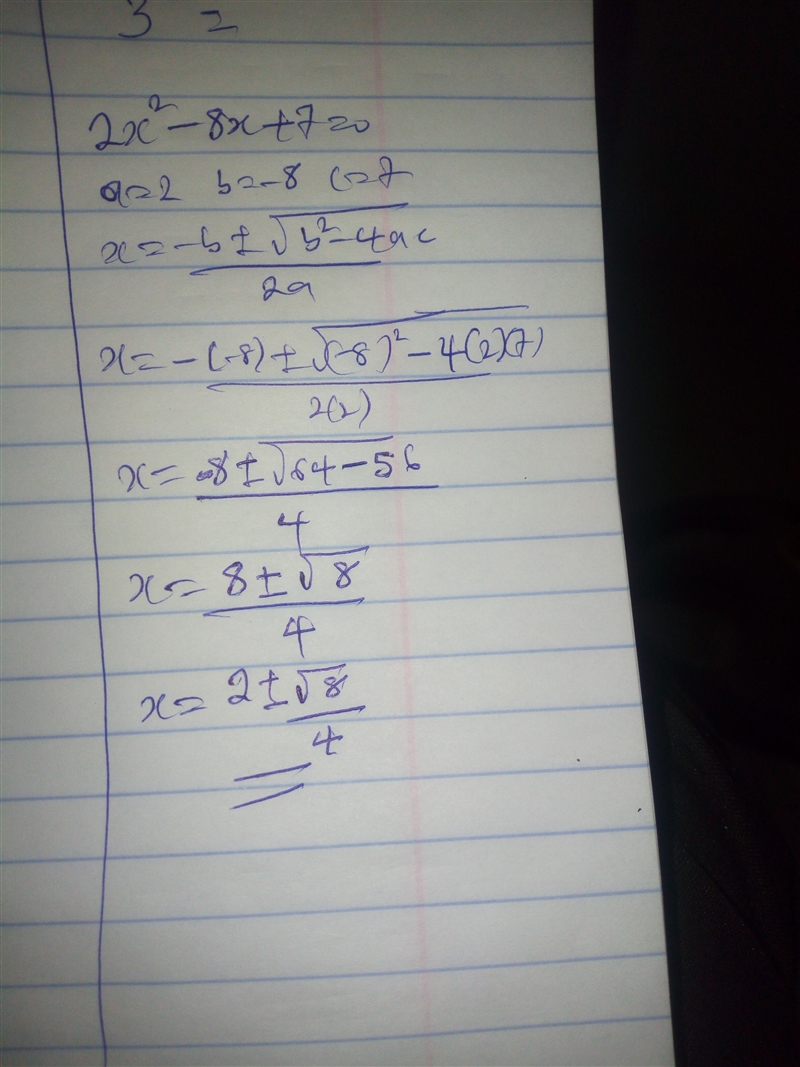 3 =
2x² - 8x + 7 = 0
a = 2 b = -8 c = 7
x = -b ± √b² - 4ac
2a
x = -(-8) ± √(-8)² - 4(2)(7)
2(2)
x = 8 ± √64 - 56
4
x = 8 ± √8
4
x = 2 ± √8
4